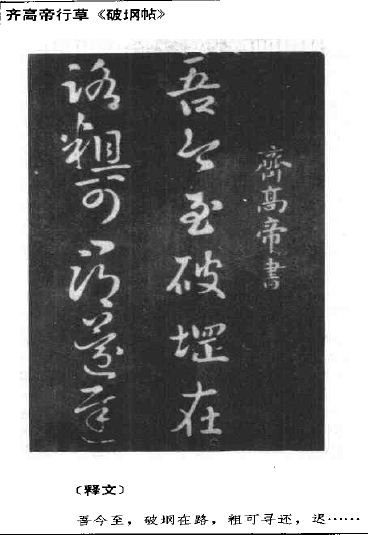 齐高帝行草《破堈帖》
齊高帝書
吾今至破堽在
路粗可尋還遲
（释文）
吾今至，破堈在路，粗可寻还，迟……